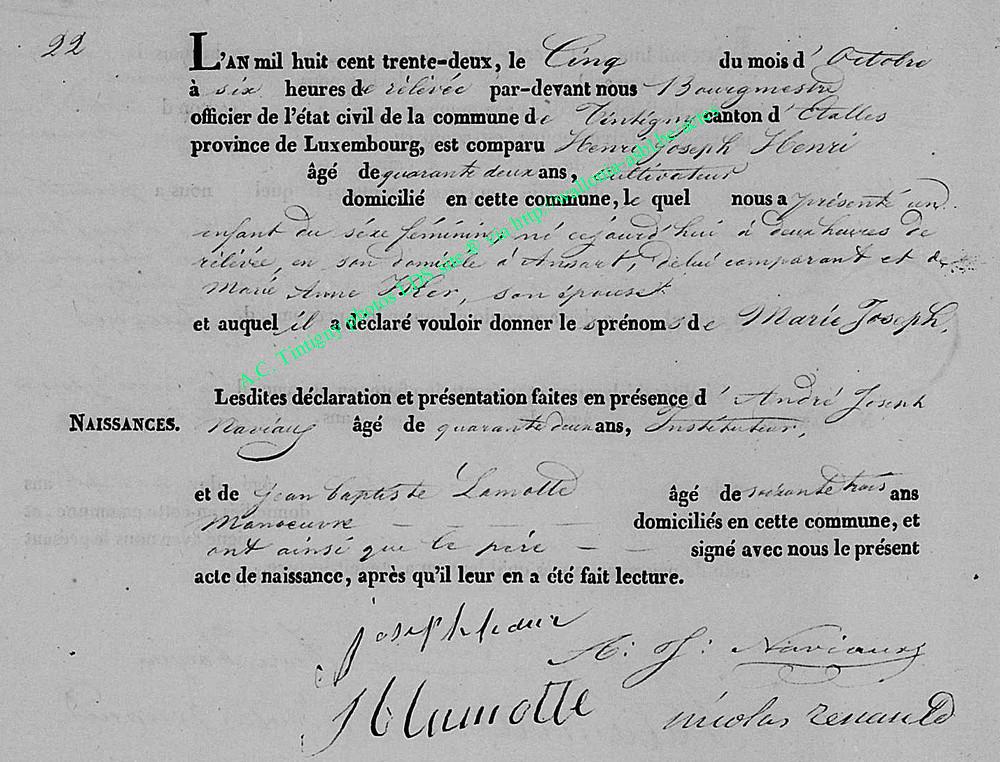 22
L'AN mil huit cent trente-deux, le Cinq du mois d'Octobre
à six heures de rélévée par-devant nous Bourgmestre
officier de l'état civil de la commune de Tintigny canton d'Etalles
province de Luxembourg, est comparu Henri Joseph Henri
âgé de quarante deux ans, cultivateur
domicilié en cette commune, le quel nous a présenté un
enfant du séxe féminin, né cejourd'hui à deux heures de
rélévée, en son domicile à Ansart, de lui comparant et de
Marie Anne son épouse
et auquel il a déclaré vouloir donner les prénoms de Marie Joseph,
Lesdites déclaration et présentation faites en présence d'André Joseph
NAISSANCES. Naviaux âgé de quarante deux ans, Instituteur,
et de Jean baptiste Lamotte âgé de soixante trois ans
Manoeuvre domiciliés en cette commune, et
ont ainsi que le père signé avec nous le présent
acte de naissance, après qu'il leur en a été fait lecture.
joseph
A: J: Naviaux
Lamotte nicolas renauld
A.C. Tintigny photos LDS site © via http://wallonia-asbl.be/actes